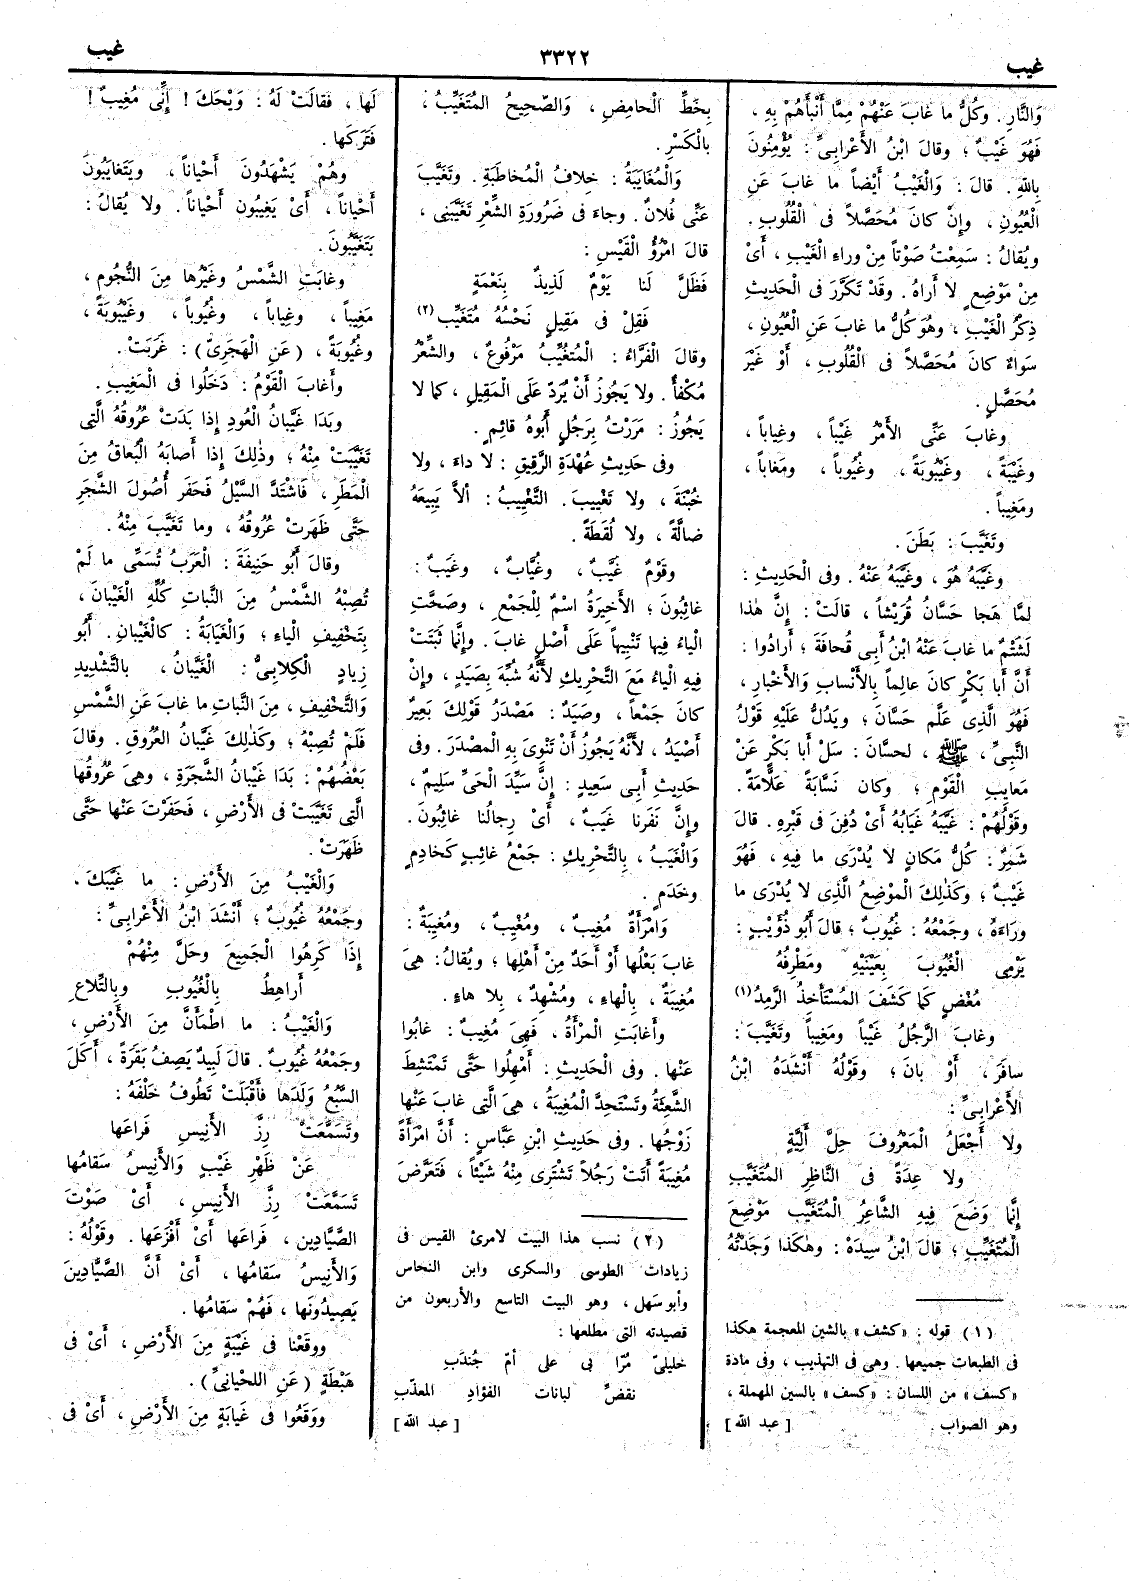 غيب
٣٣٢٢
غيب
وَالنَّارِ. وكُلُّ ما غابَ عَنْهُمْ مِمَّا أَنْبَأَهُمْ بِهِ ،
فَهُوَ غَيْبٌ ؛ وقالَ ابْنُ الأَعْرابِىِّ : يُؤْمِنُونَ
بِاللهِ. قالَ : وَالْغَيْبُ أَيْضاً ما غابَ عَنِ
الْعُيُونِ ، وإِنْ كانَ مُحَصَّلاً فى الْقُلُوبِ.
ويُقالُ : سَمِعْتُ صَوْتاً مِنْ وراءِ الْغَيْبِ ، أَىْ
مِنْ مَوْضِعٍ لا أَراهُ. وقَدْ تَكَرَّرَ فى الْحَدِيثِ
ذِكْرُ الْغَيْبِ ، وهُوَ كُلُّ ما غابَ عَنِ الْعُيُونِ ،
سَواءٌ كانَ مُحَصَّلاً فى الْقُلُوبِ ، أَوْ غَيْرَ
مُحَصَّلٍ.
وغابَ عَنِّى الأَمْرُ غَيْباً ، وغِياباً ،
وغَيْبَةً ، وغَيْبُوبَةً ، وغُيُوباً ، ومَغاباً ،
ومَغِيباً.
وتَغَيَّبَ : بَطَنَ.
وغَيَّبَهُ هُوَ ، وغَيَّبَهُ عَنْهُ. وفى الْحَدِيثِ :
لمَّا هَجا حَسَّانُ قُرَيْشاً ، قالَتْ : إِنَّ هٰذا
لَشَتْمٌ ما غابَ عَنْهُ ابْنُ أَبِى قُحافَةَ ؛ أَرادُوا :
أَنَّ أَبا بَكْرٍ كانَ عالِماً بِالأَنْسابِ وَالأَخْبارِ ،
فَهُوَ الَّذِى عَلَّمَ حَسَّانَ ؛ ويَدُلُّ عَلَيْهِ قَوْلُ
النَّبِىِّ ، ﷺ ، لحسَّانَ : سَلْ أَبا بَكْرٍ عَنْ
مَعايِبِ الْقَوْمِ ؛ وكان نَسَّابَةً عَلَّامَةً.
وقَوْلُهُمْ : غَيَّبَهُ غَيابُهُ أَىْ دُفِنَ فى قَبْرِهِ. قالَ
شَمِرٌ : كُلُّ مَكانٍ لا يُدْرَى ما فِيهِ ، فَهُوَ
غَيْبٌ ؛ وكَذٰلِكَ الْموْضِعُ الَّذِى لا يُدْرَى ما
وراءَهُ ، وجَمْعُهُ : غُيُوبٌ ؛ قالَ أَبُو ذُؤَيْبٍ :
يَرْمِى الْغُيُوبَ بِعَيْنَيْهِ ومَطْرِفُهُ
مُغْضٍ كَما كَشَفَ الْمُسْتَأْخِذُ الرَّمِدُ (١)
وغابَ الرَّجُلُ غَيْباً ومَغِيباً وتَغَيَّبَ :
سافَرَ ، أَوْ بانَ ؛ وقَوْلُهُ أَنْشَدَهُ ابْنُ
الأَعْرابِىِّ :
ولا أَجْعَلُ الْمَعْرُوفَ حِلَّ أَلِيَّةٍ
ولا عِدَةً فى النَّاظِرِ الْمُتَغَيَّبِ
إِنَّما وَضَعَ فِيهِ الشَّاعِرُ الْمُتَغَيَّب مَوْضِعَ
الْمُتَغَيِّبِ ؛ قالَ ابْنُ سِيدَهْ : وهٰكَذا وَجَدْتُهُ
(١) قوله : «كشف» بالشين المعجمة هكذا
فى الطبعات جميعها. وهى فى التهذيب ، وفى مادة
«كسف» من اللسان : «كسف» بالسين المهملة ،
وهو الصواب. [عبد الله]
بِخَطِّ الْحامِضِ ، وَالصَّحِيحُ الْمُتَغَيِّبُ ،
بالْكَسْرِ.
وَالْمُغَايَبَةُ : خلافُ الْمُخاطَبَةِ. وتَغَيَّبَ
عَنِّى فُلانٌ. وجاءَ فى ضَرُورَةِ الشِّعْرِ تَغَيَّبَنِى ،
قالَ امْرُؤُ الْقَيْسِ :
فَظَلَّ لَنا يَوْمٌ لَذِيذٌ بِنَعْمَةٍ
فَقِلْ فى مَقِيلٍ نَحْسُهُ مُتَغَيِّبِ (٢)
وقالَ الْفَرَّاءُ : الْمُتَغَيِّبُ مَرْفُوعٌ ، والشِّعْرُ
مُكْفَأٌ. ولا يَجُوزُ أَنْ يُرَدَّ عَلَى الْمَقِيلِ ، كما لا
يَجُوزُ : مَرَرْتُ بِرَجُلٍ أَبُوهُ قائِمٍ.
وفى حَدِيثِ عُهْدَةِ الرَّقِيقِ : لا داءَ ، ولا
خُبْنَةَ ، ولا تَغْيِيبَ. التَّغْيِيبُ : أَلاَّ يَبِيعَهُ
ضالَّةً ، ولا لُقَطَةً.
وقَوْمٌ غُيَّبٌ ، وغُيَّابٌ ، وغَيَبٌ :
غائِبُونَ ؛ الأَخِيرَةُ اسْمٌ لِلْجَمْعِ ، وصَحَّتِ
الْياءُ فِيها تَنْبِيهاً عَلَى أَصْلِ غابَ. وإِنَّما ثَبَتَتْ
فِيهِ الْياءُ مَعَ التَّحْرِيكِ لأَنَّهُ شُبِّهَ بِصَيَدٍ ، وإِنْ
كانَ جَمْعاً ، وصَيَدٌ : مَصْدَرُ قَوْلِكَ بَعِيرٌ
أَصْيَدُ ، لأَنَّهُ يَجُوزُ أَنْ تَنْوِىَ بِهِ الْمصْدَرَ. وفى
حَدِيثِ أَبِى سَعِيدٍ : إِنَّ سَيِّدَ الْحَىِّ سَلِيمٌ ،
وإِنَّ نَفَرَنا غَيَبٌ ، أَىْ رِجالُنا غائِبُونَ.
وَالْغَيَبُ ، بِالتَّحْرِيكِ : جَمْعُ غائِبٍ كَخادِمٍ
وخَدَمٍ.
وَامْرَأَةٌ مُغِيبٌ ، ومُغْيِبٌ ، ومُغِيبَةٌ :
غابَ بَعْلُها أَوْ أَحَدٌ مِنْ أَهْلِها ؛ ويُقالُ : هِىَ
مُغِيبَةٌ ، بِالْهاءِ ، ومُشْهِدٌ ، بِلا هاءٍ.
وأَغابَتِ الْمرْأَةُ ، فَهِىَ مُغِيبٌ : غابُوا
عَنْها. وفى الْحَدِيثِ : أَمْهِلُوا حَتَّى تَمْتَشِطَ
الشَّعِثَةُ وتَسْتَحِدَّ الْمُغِيبَةُ ، هِىَ الَّتِى غابَ عَنْها
زَوْجُها. وفى حَدِيثِ ابْنِ عَبَّاسٍ : أَنَّ امْرَأَةً
مُغِيبَةً أَتَتْ رَجُلاً تَشْتَرِى مِنْهُ شَيْئاً ، فَتَعَرَّضَ
(٢) نسب هذا البيت لامرئ القيس فى
زيادات الطوسى والسكرى وابن النحاس
وأبو سَهل ، وهو البيت التاسع والأربعون من
قصيدته التى مطلعها :
خليلىّ مُرّا بى على أمّ جُندَبِ
نقضِّ لبانات الفؤادِ المعذّبِ
[عبد الله]
لَها ، فَقالَتْ لَهُ : وَيْحَكَ ! إِنِّى مُغِيبٌ !
فَتَرَكَها.
وهُمْ يَشْهَدُونَ أَحْياناً ، ويَتَغايَبُونَ
أَحْياناً ، أَىْ يَغِيبُونَ أَحْياناً. ولا يُقالُ :
يَتَغَيَّبُونَ.
وغابَتِ الشَّمْسُ وغَيْرُها مِنَ النُّجُومِ ،
مَغِيباً ، وغِياباً ، وغُيُوباً ، وغَيْبُوبَةً ،
وغُيُوبَةً ، (عَنِ الْهَجَرِىِّ) : غَرَبَتْ.
وأَغابَ الْقَوْمُ : دَخَلُوا فى الْمَغِيبِ.
وبَدَا غَيَّبانُ الْعُودِ إِذا بَدَتْ عُرُوقُهُ الَّتِى
تَغَيَّبَتْ مِنْهُ ؛ وذٰلِكَ إِذا أَصابَهُ الْبُعاقُ مِنَ
الْمَطَرِ ، فَاشْتَدَّ السَّيْلُ فَحَفَر أُصُولَ الشَّجَرِ
حَتَّى ظَهَرَتْ عُرُوقُهُ ، وما تَغَيَّبَ مِنْهُ.
وقالَ أَبُو حَنِيفَةَ : الْعَرَبُ تُسَمِّى ما لَمْ
تُصِبْهُ الشَّمْسُ مِنَ النَّباتِ كُلِّهِ الْغَيْبانَ ،
بِتَخْفِيفِ الْياءِ ؛ وَالْغَيابَةُ : كالْغَيْبانِ. أَبُو
زِيادٍ الْكِلابِىُّ : الْغَيَّبانُ ، بالتَّشْدِيدِ
وَالتَّخْفِيفِ ، مِنَ النَّباتِ ما غابَ عَنِ الشَّمْسِ
فَلَمْ تُصِبْهُ ؛ وكَذٰلِكَ غَيَّبانُ الْعُرُوقِ. وقالَ
بَعْضُهُمْ : بَدَا غَيْبانُ الشَّجَرَةِ ، وهِىَ عُرُوقُها
الَّتِى تَغَيَّبَتْ فى الأَرْضِ ، فَحَفَرْتَ عَنْها حَتَّى
ظَهَرَتْ.
وَالْغَيْبُ مِنَ الأَرْضِ : ما غَيَّبَكَ ،
وجَمْعُهُ غُيُوبٌ ؛ أَنْشَدَ ابْنُ الأَعْرابِىِّ :
إِذَا كَرِهُوا الْجَمِيعَ وحَلَّ مِنْهُمْ
أَراهِطُ بِالْغُيُوبِ وبِالتِّلاعِ
وَالْغَيْبُ : ما اطْمَأَنَّ مِنَ الأَرْضِ ،
وجَمْعُهُ غُيُوبٌ. قالَ لَبِيدٌ يَصِفُ بَقَرَةً ، أَكَلَ
السَّبُعُ وَلَدَها فَأَقْبَلَتْ تَطُوفُ خَلْفَهُ :
وتَسَمَّعَتْ رِزَّ الأَنِيسِ فَراعَها
عَنْ ظَهْرِ غَيْبٍ وَالأَنِيسُ سَقامُها
تَسَمَّعَتْ رِزَّ الأَنِيسِ ، أَىْ صَوْتَ
الصَّيَّادِين ، فَراعَها أَىْ أَفْزَعَها. وقَوْلُهُ :
وَالأَنِيسُ سَقامُها ، أَىْ أَنَّ الصَّيَّادِينَ
يَصِيدُونَها ، فَهُمْ سَقامُها.
ووَقَعْنا فى غَيْبَةٍ مِنَ الأَرْضِ ، أَىْ فى
هَبْطَةٍ (عَنِ اللحْيانِىِّ).
ووَقَعُوا فى غَيابَةٍ مِنَ الأَرْضِ ، أَىْ فى